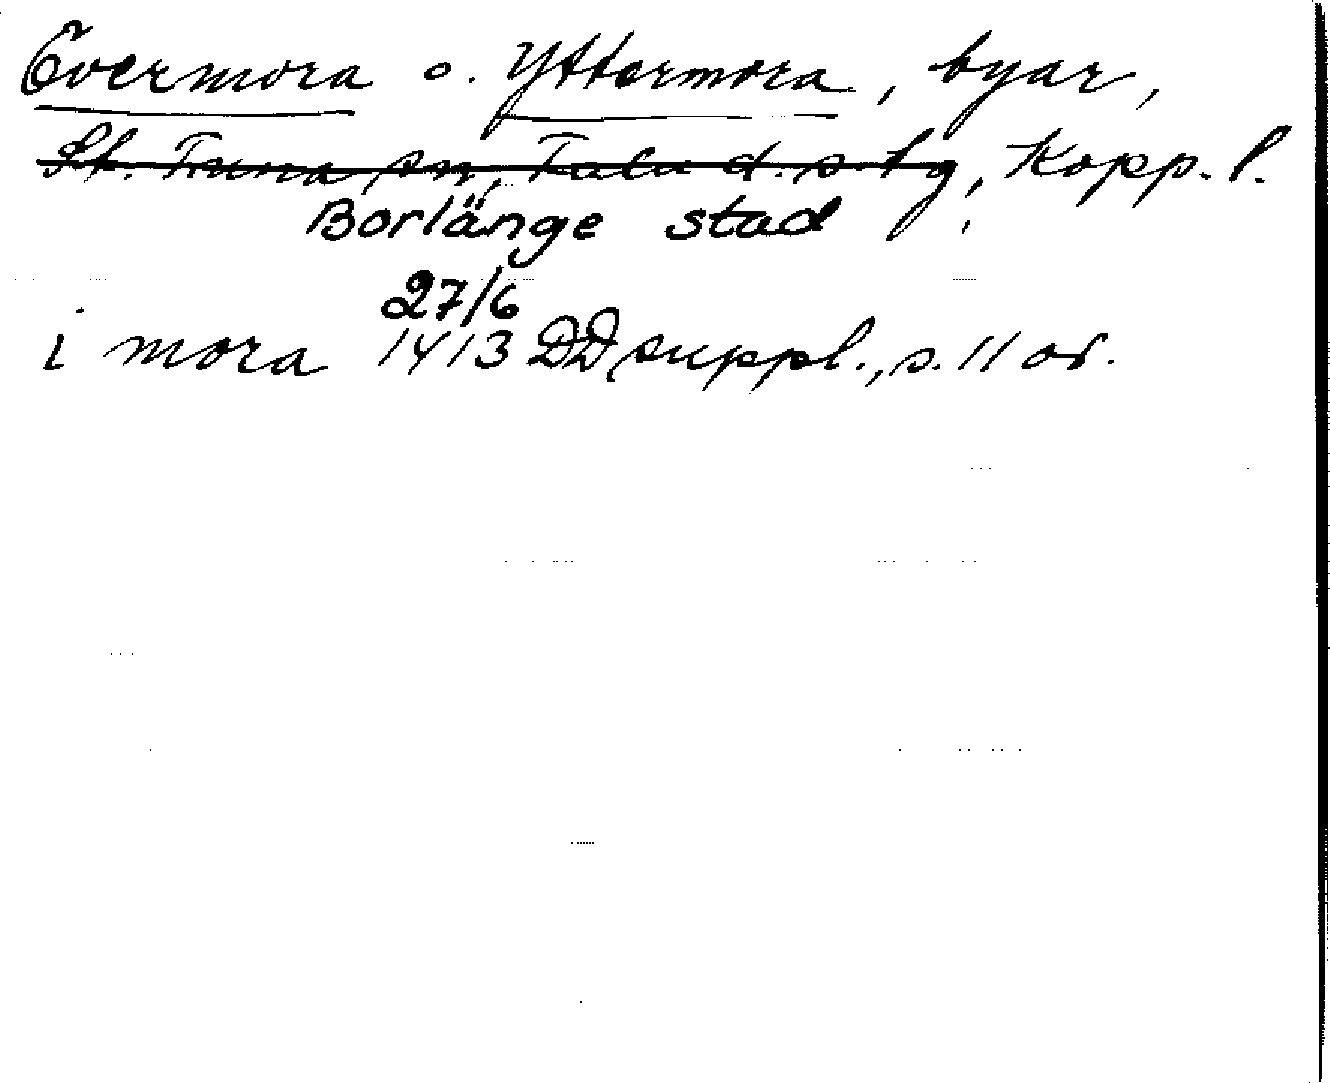 Övermora o. Yttermora, byar,
St. Tuna sn, Falu d. s. tg, Kopp. l.
Borlänge stad
27/6
i mora 1413 DD suppl., s. 11 or.